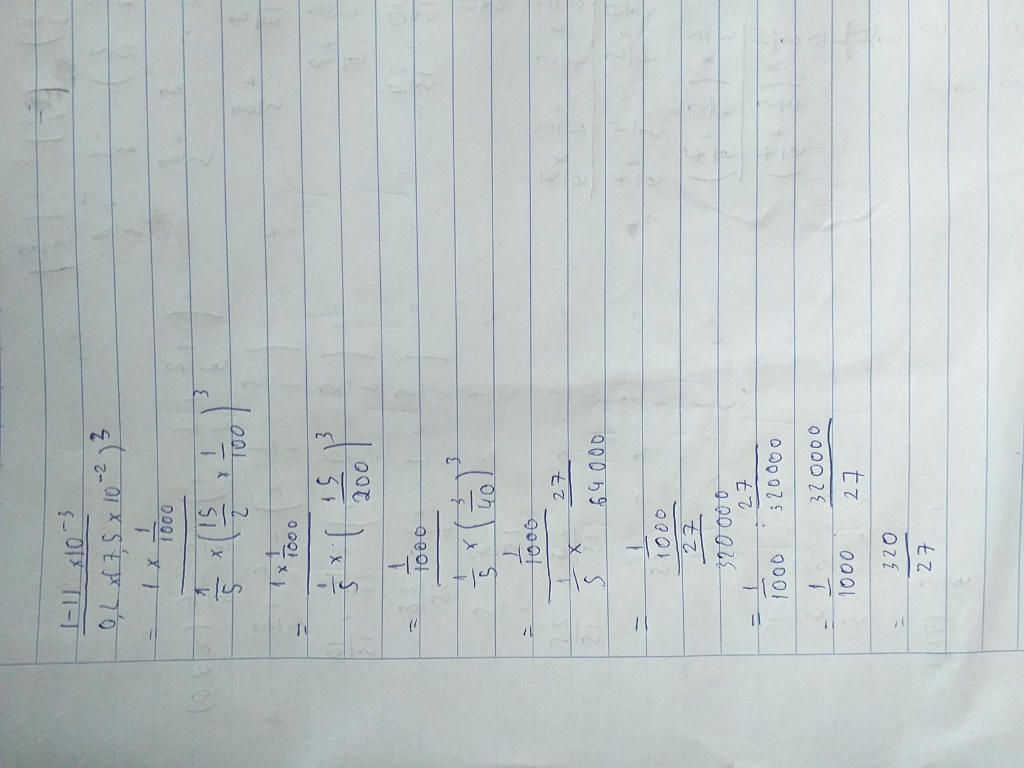 |-1| × 10⁻³
0,2 × (7,5 × 10⁻²)³
= 1 × 1/1000
1/5 × (15/2 × 1/100)³
= 1 × 1/1000
1/5 × (15/200)³
= 1/1000
1/5 × (3/40)³
= 1/1000
1/5 × 27/64000
= 1/1000
27/320000
= 1/1000 : 27/320000
= 1/1000 · 320000/27
= 320/27